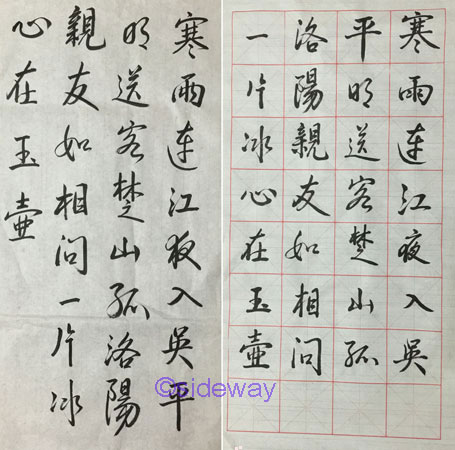 寒雨連江夜入吳平
明送客楚山孤洛陽
親友如相問一片冰
心在玉壺
寒雨連江夜入吳
平明送客楚山孤
洛陽親友如相問
一片冰心在玉壺
©sideway